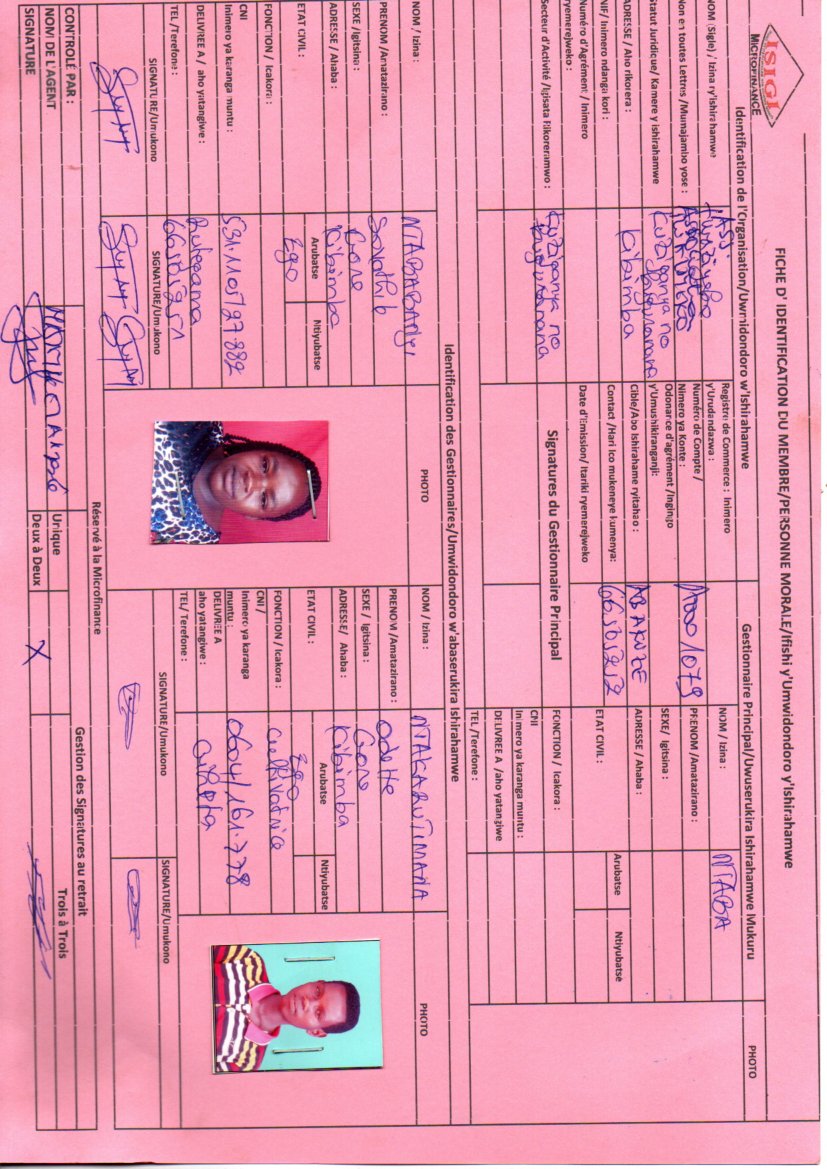 ISIGI
MICROFINANCE
FICHE D' IDENTIFICATION DU MEMBRE/PERSONNE MORALE/Ifishi y'Umwidondoro y'Ishirahamwe
Identification de l'Organisation/Uwmidondoro w'Ishirahamwe
NOM (Sigle) / Izina ry'Ishirahamwe
Non en toutes Lettres /Mumajambo yose :
Statut Juridique/ Kamere y ishirahamwe
Kuziganya no
ADRESSE / Aho rikorera :
Kibimba
NIF/ Inimero ndanga kori :
Numéro d'Agrément / Inimero
ryemerejweko :
Secteur d'Activité /Igisata Rikoreramwo :
Kuziganya no
Registre de Commerce : Inimero
y'Urudandazwa :
Numéro de Compte /
Nimero ya Konte :
10001079
Odonance d'agrément /Ingingo
y'Umushikiranganji:
Cible/Abo Ishirahame ryitaho :
ABAKUZE
Contact /Hari ico mukeneye kumenya:
Date d'Emission/ Itariki ryemerejweko
Signatures du Gestionnaire Principal
Gestionnaire Principal/Uwuserukira Ishirahamwe Mukuru
PHOTO
NOM / Izina :
NTABA
PRENOM /Amatazirano :
SEXE/ Igitsina :
ADRESSE / Ahaba :
ETAT CIVIL :
Arubatse
Ntiyubatse
FONCTION / Icakora :
CNI
Inimero ya karanga muntu :
DELIVREE A /aho yatangiwe
TEL /Terefone :
Identification des Gestionnaires/Umwidondoro w'abaserukira Ishirahamwe
NOM / Izina :
PHOTO
PRENOM /Amatazirano :
SEXE /Igitsina :
Gore
ADRESSE / Ahaba :
Kibimba
ETAT CIVIL :
Arubatse
Ntiyubatse
Ego
FONCTION / Icakora :
CNI
Inimero ya karanga muntu :
DELIVREE A / aho yatangiwe :
TEL /Terefone :
SIGNATURE/Umukono
SIGNATURE/Umukono
NOM / Izina :
NTAKARUTIMANA
PHOTO
PRENOM /Amatazirano :
Odette
SEXE / Igitsina :
Gore
ADRESSE/ Ahaba :
Kibimba
ETAT CIVIL :
Arubatse
Ntiyubatse
Ego
FONCTION / Icakora :
cultivatrice
CNI /
Inimero ya karanga
muntu :
0604/161.778
DELIVREE A
aho yatangiwe :
TEL/ Terefone :
SIGNATURE/Umukono
SIGNATURE/Umukono
Réservé à la Microfinance
CONTROLÉ PAR :
NOM DE L'AGENT
SIGNATURE
Gestion des Signatures au retrait
Unique
Trois à Trois
Deux à Deux
X